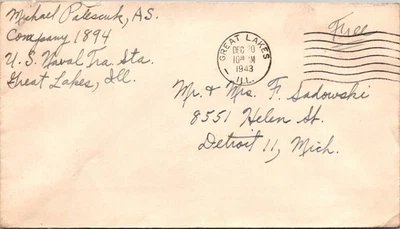 Michael Patescuk, AS.
Company 1894
U.S. Naval Tra. Sta.
Great Lakes, Ill.
GREAT LAKES
DEC 10
1943
ILL.
Free
Mr. & Mrs. F. Sadowski
8551 Helen St.
Detroit 11, Mich.